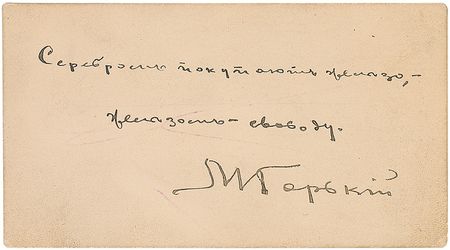 Серебромъ покупаютъ железо,-
железомъ - свободу.
М Горькій